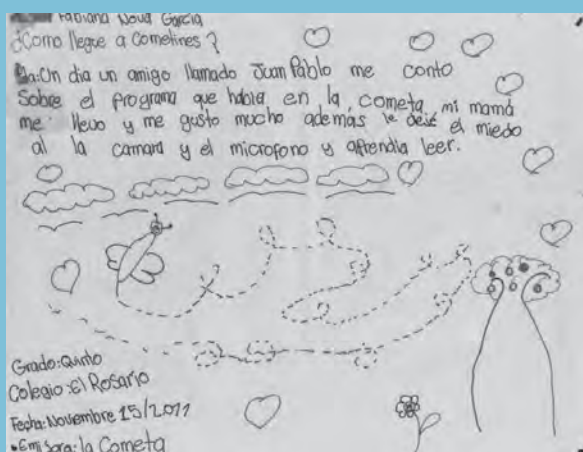 Fabiana Nova Garcia
¿Como llegue a Cometines?
Un dia un amigo llamado Juan Pablo me conto
Sobre el programa que habia en la cometa, mi mamá
me llevo y me gusto mucho además le deje el miedo
al la camara y el microfono y aprendia leer.
Grado: Quinto
Colegio: El Rosario
Fecha: Noviembre 15/2011
• Emisora: la Cometa